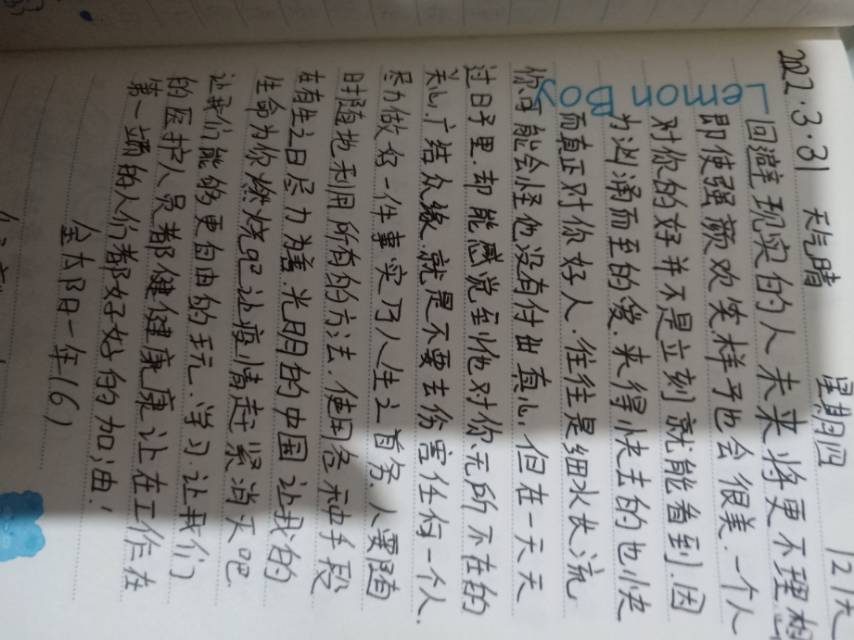 2022.3.31 天气晴 星期四 121天
Lemon Boy
回避现实的人未来将更不理想
即使强颜欢笑样子也会很美.一个人
对你的好并不是立刻就能看到.因
为汹涌而至的爱.来得快去的也快
而真正对你好人.往往是细水长流
你可能会怪他没有付出真心.但在一天天
过日子里.却能感觉到他对你无所不在的
关心.广结众缘.就是不要去伤害任何一个人.
尽力做好一件事实乃人生之首务.人要随
时随地利用所有的方法.使用各种手段
在有生之日尽力为善.光明的中国让我的
生命为你燃烧吧让疫情赶紧消灭吧.
让我们能够更自由的玩.学习.让我们
的医护人员都健健康康让在工作在
第一端的人们都好好的加油!
金太阳一年(6)